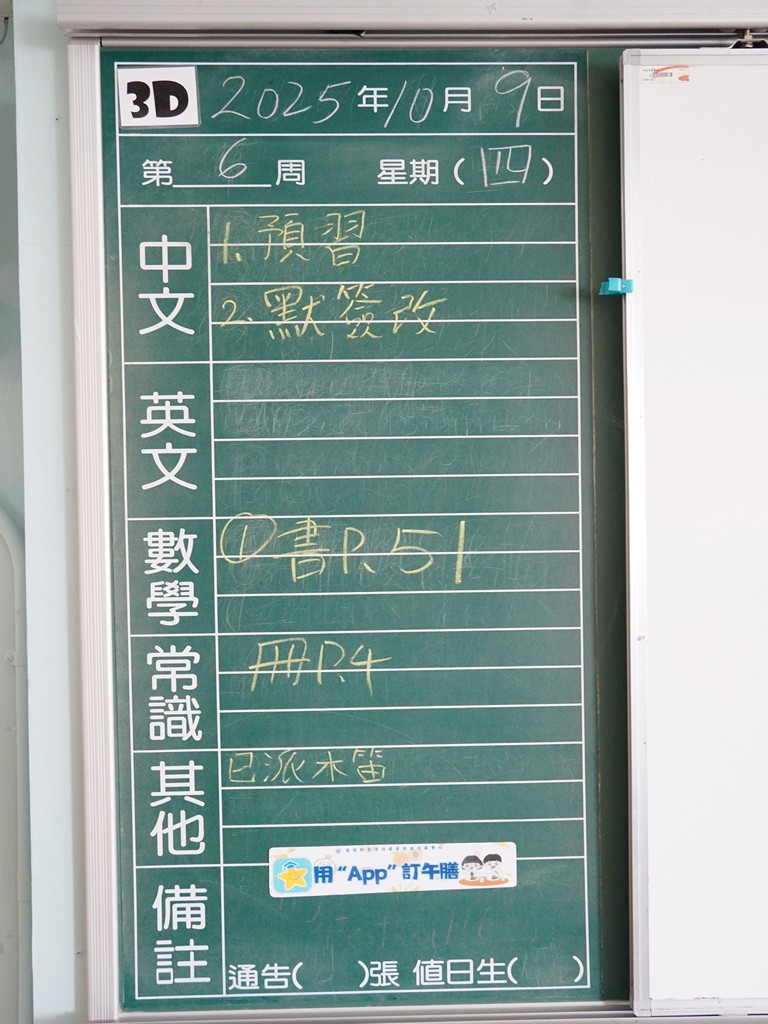 3D 2025年10月9日
第6周 星期(四)
中文
1. 預習
2. 默簽改
英文
數學
①書P.51
常識
冊P.4
其他
已派木笛
用“App”訂午膳
備註
通告( )張 值日生( )